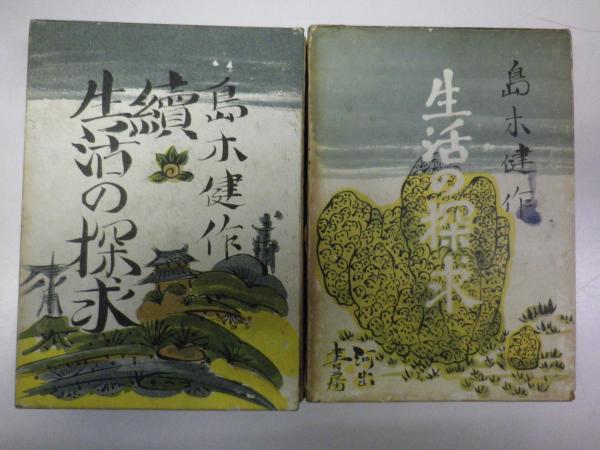 島木健作
續
生活の探求
島木健作
生活の探求
河出
書房